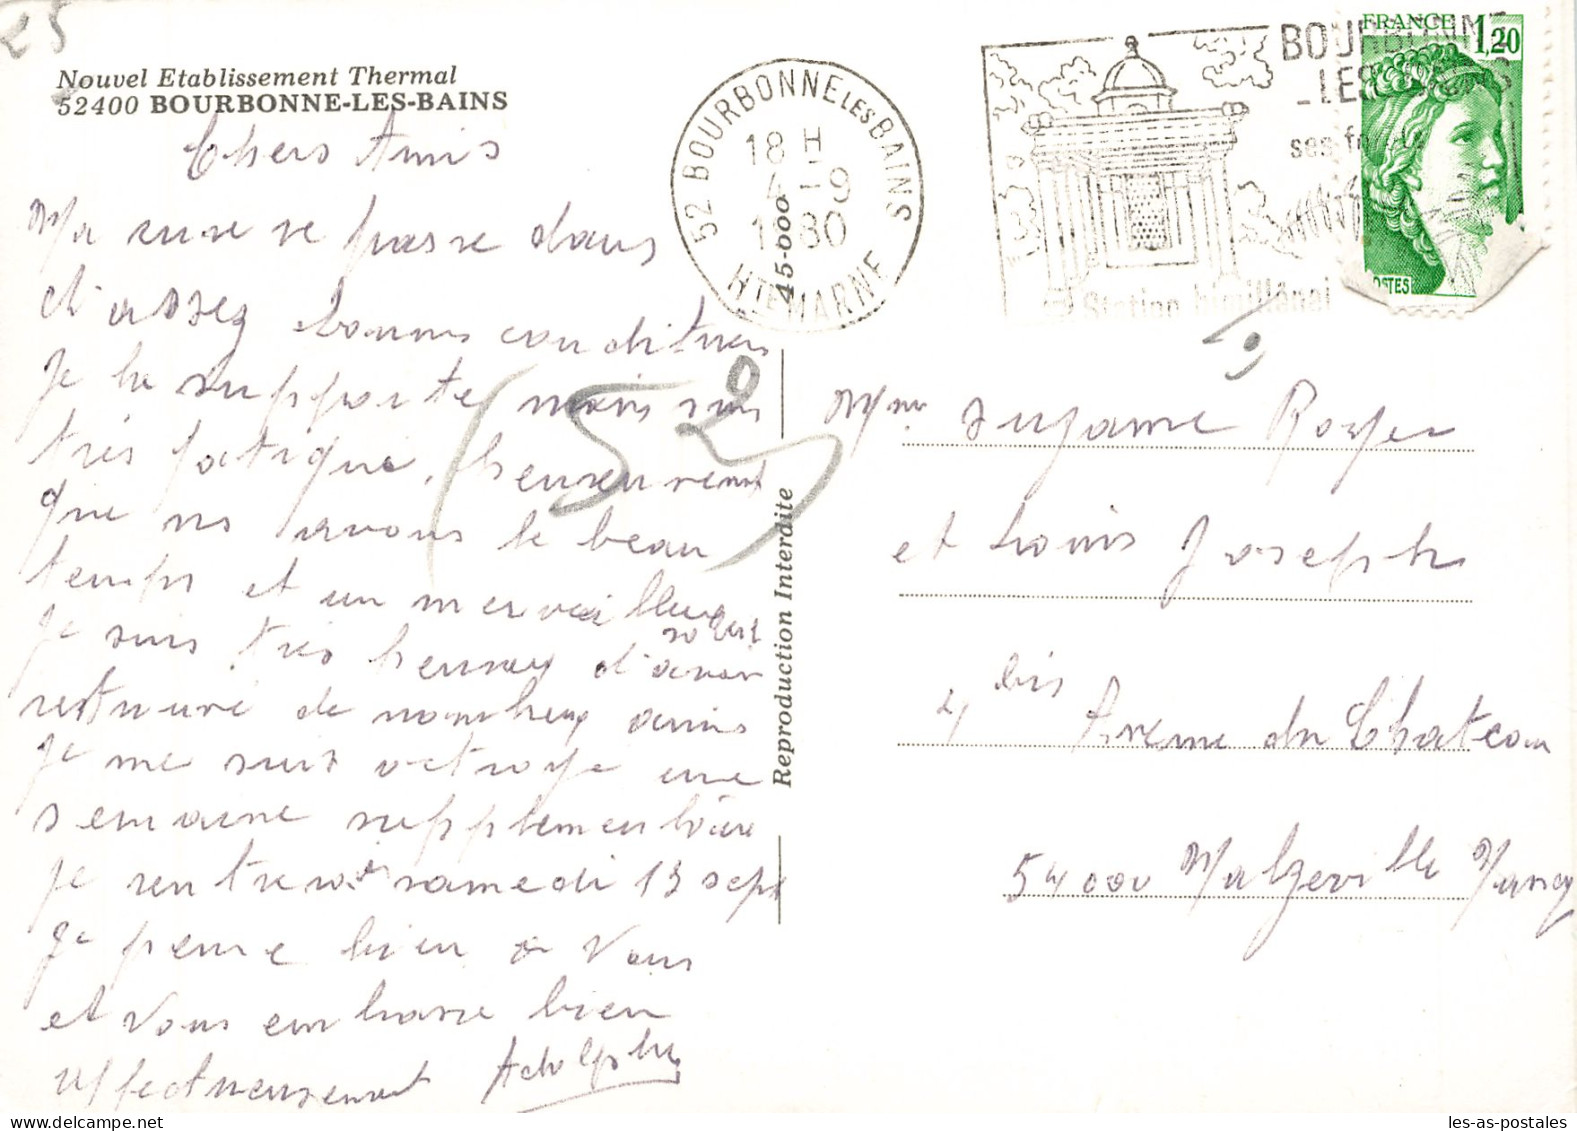 25
Nouvel Etablissement Thermal
52400 BOURBONNE-LES-BAINS
Chers Amis
Ma cure se passe dans
d'assez bonnes conditions
je la supporte mais suis
très fatigué, heureusement
que ns avons le beau
temps et un merveilleux
soleil
je suis très heureux d'avoir
retrouvé de nombreux amis
je me suis octroyé une
semaine supplémentaire
je rentrerai samedi 13 sept
je pense bien à Vous
et Vous embrasse bien
affectueusement Adolphe
(52)
Reproduction Interdite
45-000
52 BOURBONNE LES BAINS
18 H
4 -9
1980
HTE MARNE
BOURBONNE
-LES-BAINS
ses
Station
FRANCE 1,20
POSTES
Mme Suzanne Royer
et Louis Joseph
4 bis Avenue du Chateau
54000 Malzeville Nancy
les-as-postales